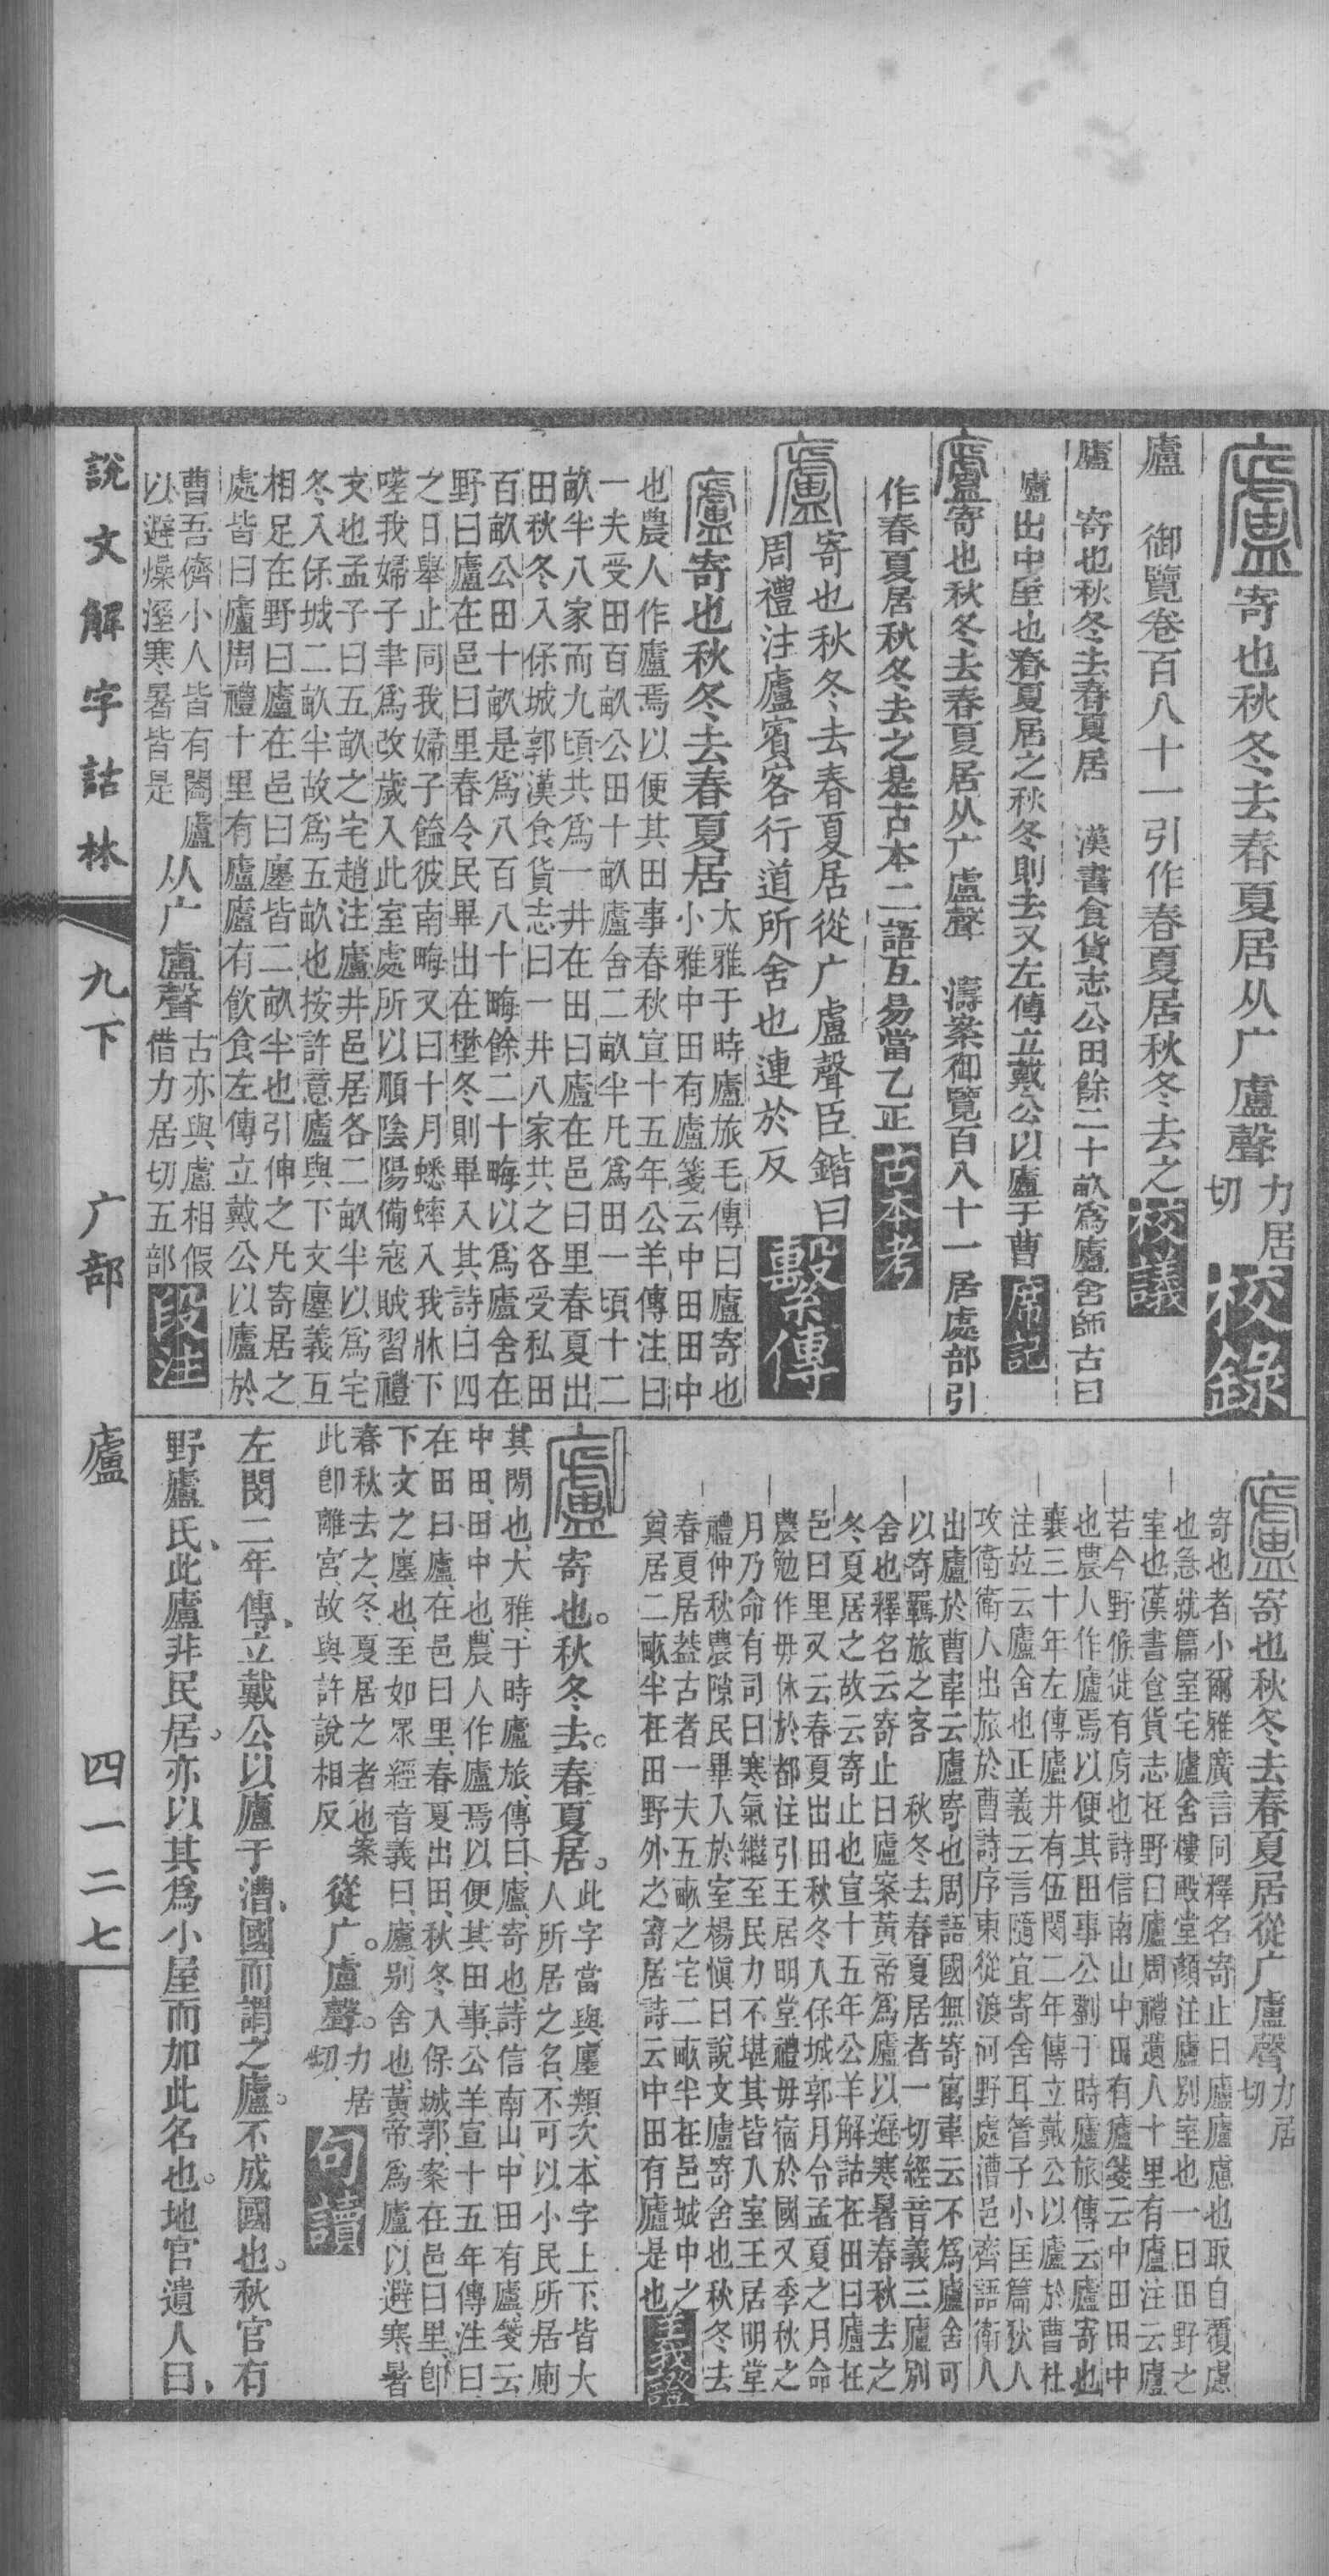 廬寄也秋冬去春夏居从广盧聲力居切校錄
廬　御覽卷百八十一引作春夏居秋冬去之校議
廬　寄也秋冬去春夏居　漢書食貨志公田餘二十畝爲廬舍師古曰
廬出中里也春夏居之秋冬則去又左傳立戴公以廬于曹席記
廬寄也秋冬去春夏居从广盧聲　濤案御覽百八十一居處部引
作春夏居秋冬去之是古本二語互易當乙正古本考
廬寄也秋冬去春夏居從广盧聲臣鍇曰
周禮注廬賓客行道所舍也連於反繫傳
廬寄也秋冬去春夏居大雅于時廬旅毛傳曰廬寄也
小雅中田有廬箋云中田田中
也農人作廬焉以便其田事春秋宣十五年公羊傳注曰
一夫受田百畝公田十畝廬舍二畝半凡爲田一頃十二
畝半八家而九頃共爲一井在田曰廬在邑曰里春夏出
田秋冬入保城郭漢食貨志曰一井八家共之各受私田
百畝公田十畝是爲八百八十畮餘二十畮以爲廬舍在
野曰廬在邑曰里春令民畢出在壄冬則畢入其詩曰四
之日舉止同我婦子饁彼南畮又曰十月蟋蟀入我牀下
嗟我婦子聿爲改歲入此室處所以順陰陽備寇賊習禮
文也孟子曰五畝之宅趙注廬井邑居各二畝半以爲宅
冬入保城二畝半故爲五畝也按許意廬與下文廛義互
相足在野曰廬在邑曰廛皆二畝半也引伸之凡寄居之
處皆曰廬周禮十里有廬廬有飮食左傳立戴公以廬於
曹吾儕小人皆有闔廬
以避燥溼寒暑皆是从广盧聲古亦與盧相假
借力居切五部段注
廬寄也秋冬去春夏居從广盧聲力居切
寄也者小爾雅廣言同釋名寄止曰廬廬慮也取自覆慮
也急就篇室宅廬舍樓殿堂顏注廬別室也一曰田野之
室也漢書食貨志在野曰廬周禮遺人十里有廬注云廬
若今野候徙有房也詩信南山中田有廬箋云中田田中
也農人作廬焉以便其田事公劉于時廬旅傳云廬寄也
襄三十年左傳廬井有伍閔二年傳立戴公以廬於曹杜
注竝云廬舍也正義云言隨宜寄舍耳管子小匡篇狄人
攻衛衛人出旅於曹詩序東徙渡河野處漕邑齊語衛人
出廬於曹韋云廬寄也周語國無寄寓韋云不爲廬舍可
以寄羈旅之客　秋冬去春夏居者一切經音義三廬別
舍也釋名云寄止曰廬案黃帝爲廬以避寒暑春秋去之
冬夏居之故云寄止也宣十五年公羊解詁在田曰廬在
邑曰里又云春夏出田秋冬入保城郭月令孟夏之月命
農勉作毋休於都注引王居明堂禮毋宿於國又季秋之
月乃命有司曰寒氣繼至民力不堪其皆入室王居明堂
禮仲秋農隙民畢入於室楊愼曰說文廬寄舍也秋冬去
春夏居葢古者一夫五畝之宅二畝半在邑城中之
奠居二畝半在田野外之寄居詩云中田有廬是也義證
廬寄也。秋冬去。春夏居。此字當與廛類次、本字上下、皆大
人所居之名、不可以小民所居廁
其閒也、大雅、于時廬旅、傳曰、廬、寄也、詩信南山、中田有廬、箋云
中田、田中也、農人作廬焉、以便其田事、公羊宣十五年傳注曰、
在田曰廬、在邑曰里、春夏出田、秋冬入保城郭、案在邑曰里、卽
下文之廛也、至如眾經音義曰、廬、別舍也、黃帝爲廬、以避寒暑
春秋去之、冬夏居之者也案
此卽離宮、故與許說相反從广。盧聲。力居切、句讀
左閔二年傳、立戴公以廬于漕、國而謂之廬。不成國也。秋官有
野廬氏、此廬非民居。亦以其爲小屋而加此名也。地官遺人曰、
說文解字詁林　九下　广部　廬　四一二七